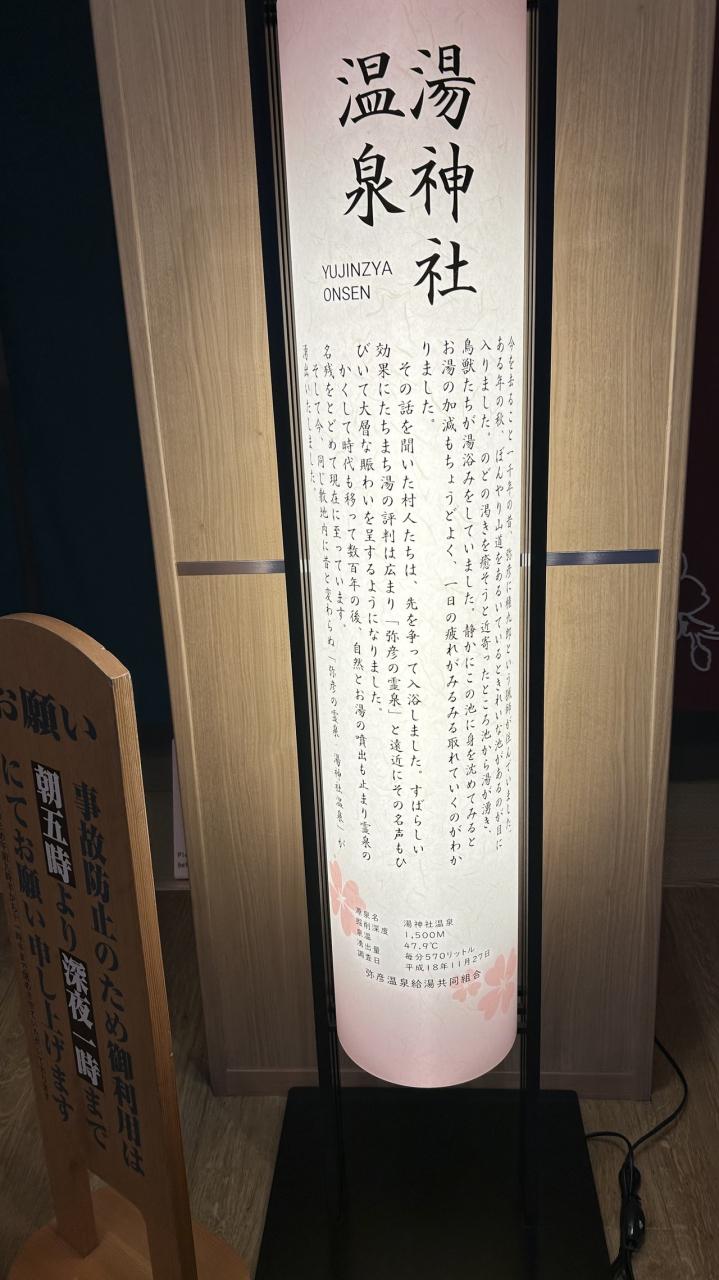 湯神社
温泉
YUJINZYA
ONSEN
今を去ること一千年の昔、弥彦に権九郎という猟師が住んでいました。
ある年の秋、ぼんやり山道をあるいているときれいな池があるのが目に
入りました。のどの渇きを癒そうと近寄ったところ池から湯が湧き、
鳥獣たちが湯浴みをしていました。静かにこの池に身を沈めてみると
お湯の加減もちょうどよく、一日の疲れがみるみる取れていくのがわか
りました。
その話を聞いた村人たちは、先を争って入浴しました。すばらしい
効果にたちまち湯の評判は広まり「弥彦の霊泉」と遠近にその名声もひ
びいて大層な賑わいを呈するようになりました。
かくして時代も移って数百年の後、自然とお湯の噴出も止まり霊泉の
名残をとどめて現在に至っています。
そして今、同じ敷地内に昔と変わらぬ「弥彦の霊泉 湯神社温泉」が
湧出いたしました。
源泉名 湯神社温泉
掘削深度 1,500M
泉温 47.9℃
湧出量 毎分570リットル
調査日 平成18年11月27日
弥彦温泉給湯共同組合
お願い
事故防止のため御利用は
朝五時より深夜一時まで
にてお願い申し上げます